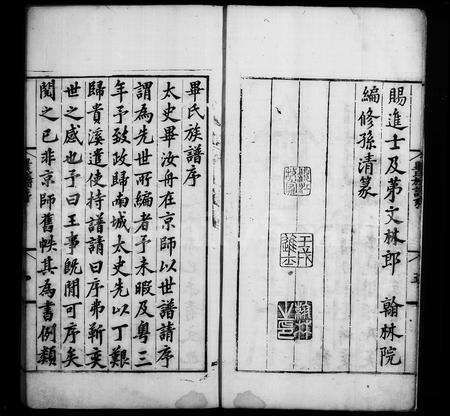 賜進士及第文林郎　翰林院
編修孫清篆
畢氏族譜序
太史畢汝舟在京師以世譜請序
謂為先世所編者予未暇及粵三
年予致政歸南城太史先以丁艱
歸貴溪遣使持譜請曰序弗靳奕
世之感也予曰王事旣閒可序矣
閱之已非京師舊帙其為書例類